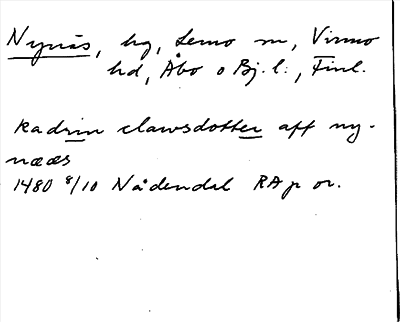 Nynäs, hg, Lemo sn, Virmo
hd, Åbo o Bj. l:, Finl.
kadrin clawsdotter aff ny-
nææs
1480 8/10 Nådendal RAp or.